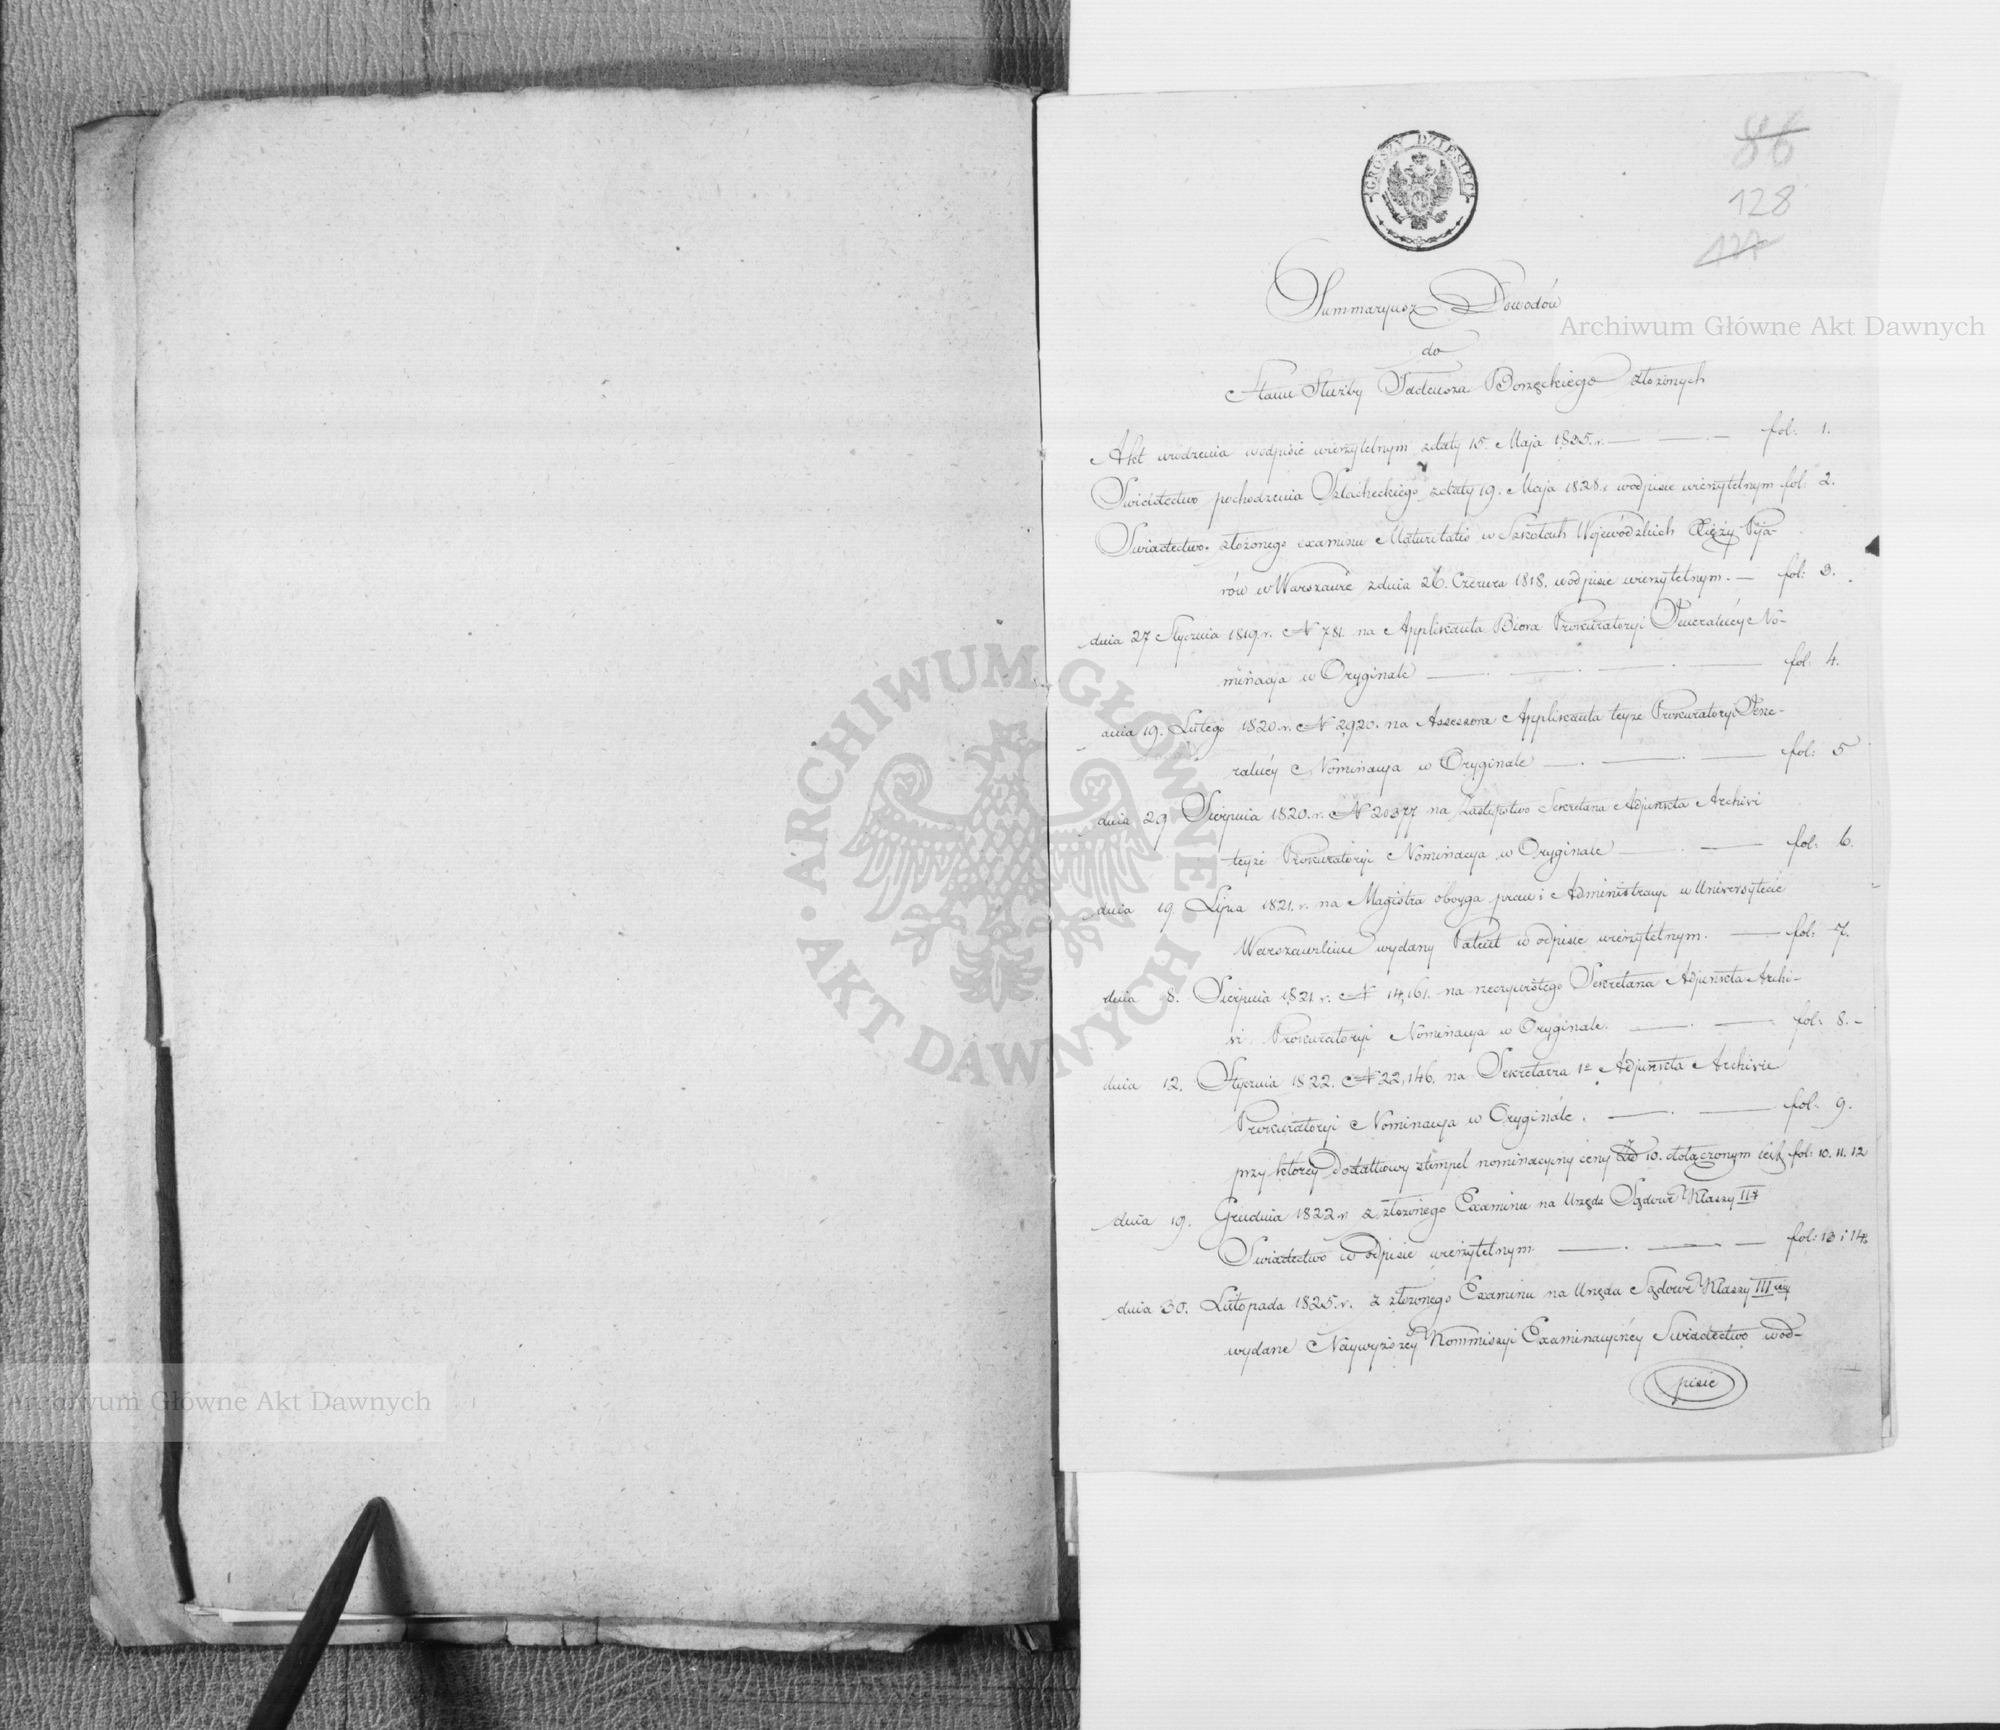 GROSZY DZIESIĘĆ
86
128
127
Summaryusz Dowodów
do
Stanu Służby Tadeusza Borzęckiego złożonych
Akt urodzenia w odpisie wierzytelnym z daty 15. Maja 1825. r. — — fol: 1.
Swiadectwo pochodzenia Szlacheckiego z daty 19. Maja 1828. r w odpisie wierzytelnym fol: 2.
Swiadectwo złożonego examinu Maturitatis w Szkołach Wojewódzkich Xięży Pija-
rów w Warszawie z dnia 26. Czerwca 1818. w odpisie wierzytelnym. — fol: 3.
dnia 27 Stycznia 1819 r. N 781. na Applikanta Biora Prokuratoryi Generalnéy No-
minacja w Oryginale — fol: 4.
dnia 19. Lutego 1820. r. N 2920. na Assessora Applikanta teyże Prokuratoryi Gene-
ralnéy Nominacya w Oryginale — fol: 5
dnia 29 Sierpnia 1820. r. N 20377 na Zastępstwo Sekretarza Adjunkta Archivi
teyże Prokuratoryi Nominacya w Oryginale — fol: 6.
dnia 19. Lipca 1821. r. na Magistra oboyga praw i Administracyi w Uniwersytecie
Warszawskim wydany Patent w odpisie wierzytelnym. — fol: 7.
dnia 8. Sierpnia 1821 r. N 14,161. na rzeczywistego Sekretarza Adjunkta Archi-
vi Prokuratoryi Nominacya w Oryginale. — fol: 8. –
dnia 12. Stycznia 1822. N 22,146. na Sekretarza 1º Adjunkta Archivie
Prokuratoryi Nominacya w Oryginale. — fol: 9.
przy któréy dodatkowy stempel nominacyjny ceny 10. dołączonym jest fol: 10. 11. 12
dnia 19. Grudnia 1822 r. z złożonego Examinu na Urzęda Sądowe Klassy II
Swiadectwo w odpisie wierzytelnym — fol: 13 i 14.
dnia 30. Listopada 1825. r. z złożonego Examinu na Urzęda Sądowe Klassy III ciey
wydane Naywyższey Kommissyi Examinacyinéy Swiadectwo w od-
pisie
Archiwum Główne Akt Dawnych
ARCHIWUM GŁÓWNE · AKT DAWNYCH ·
Archiwum Główne Akt Dawnych